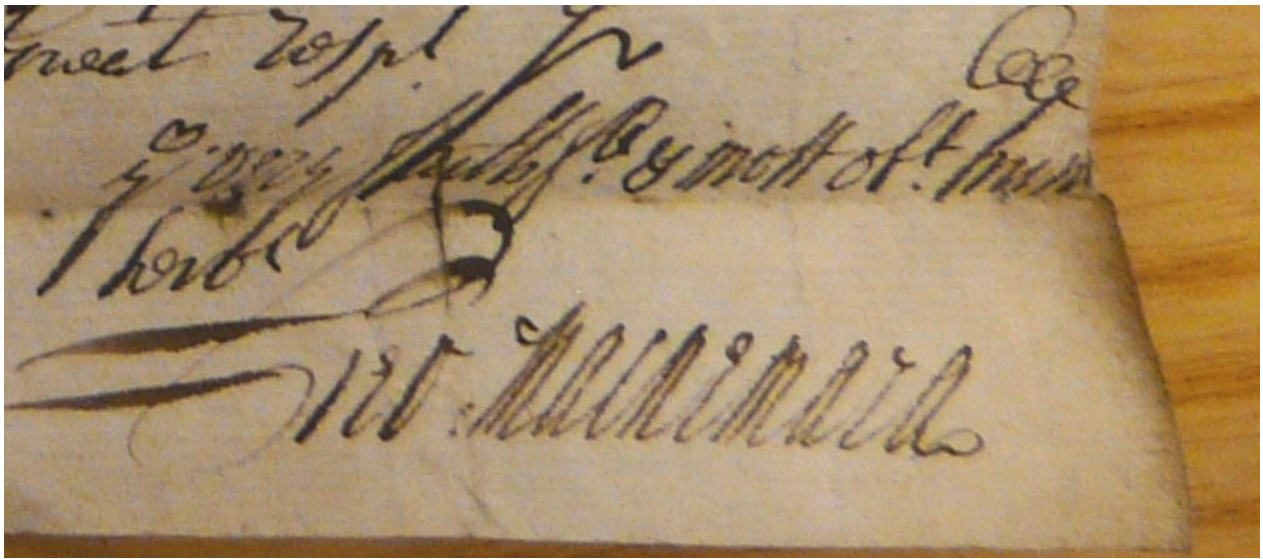 great respt Sr
yr very faithfll & most obt. hum
servt
Jno Macnemara